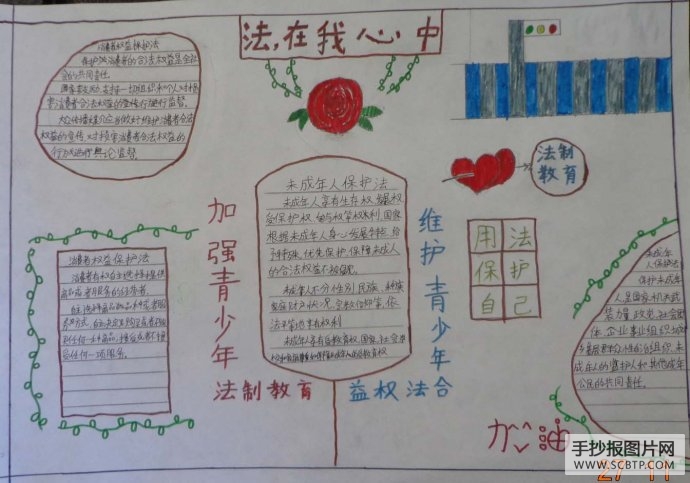 法，在我心中
消费者权益保护法
保护消费者的合法权益是全社
会的共同责任。
国家鼓励、支持一切组织和个人对损
害消费者合法权益的行为进行社会监督。
大众传播媒介应当做好维护消费者合法
权益的宣传，对损害消费者合法权益的
行为进行舆论监督。
消费者权益保护法
消费者有权自主选择提供
商品或者服务的经营者，
自主选择商品品种或者服
务方式，自主决定购买或者不购买
任何一种商品、接受或者不接
受任何一项服务。
加强青少年
法制教育
未成年人保护法
未成年人享有生存权、发展权、
受保护权、参与权等权利，国家
根据未成年人身心发展特点给
予特殊、优先保护，保障未成年人
的合法权益不被侵犯。
未成年人不分性别、民族、种族、
家庭财产状况、宗教信仰等，依
法平等地享有权利
未成年人享有受教育权，国家、社会、学
维护青少年
益权法合
法制
教育
用法
保护
自己
未成年
人保护法
保护未成年
人，是国家机关、武
装力量、政党、社会团
体、企业事业组织、
乡基层群众性自治组织、未
成年人的监护人和其他成年
公民的共同责任。
加油
手抄报图片网
WWW.SCBTP.COM
27 11